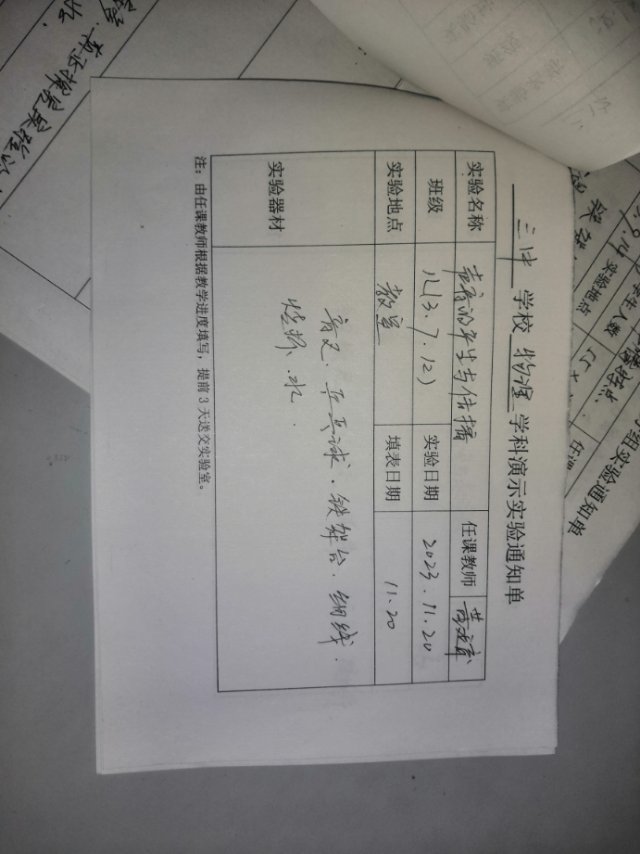 三中 学校 物理 学科演示实验通知单
实验名称 声音的产生与传播 任课教师
班级 八(3.7.12) 实验日期 2023.11.20
实验地点 教室 填表日期 11.20
实验器材 音叉、乒乓球、铁架台、细线、
烧杯、水、
注：由任课教师根据教学进度填写，提前 3 天送交实验室。
组实验通知单